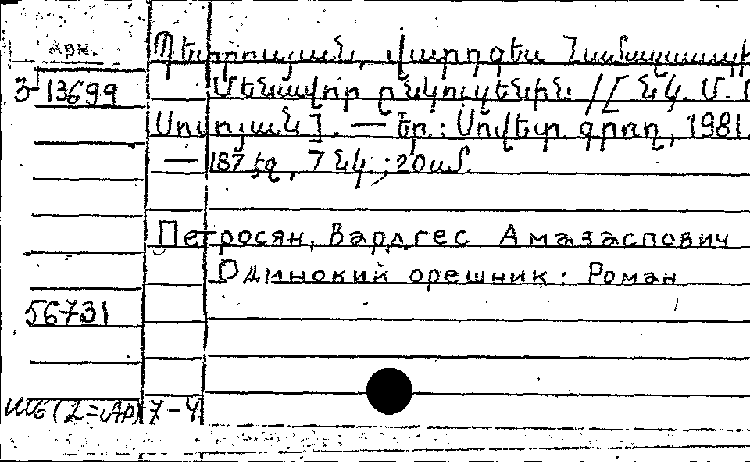 Арм.
Պետրոսյան, Վարդգես Համազասպի
3-13699
Մենավոր ընկուզենին // [Նկ. Մ.
Սոսոյան]. — Եր.: Սովետ. գրող, 1981.
— 187 էջ, 7 նկ.; 20 սմ.
Петросян, Вардгес Амазаспович
Одинокий орешник: Роман
56731
Ш6(2=Ар)7-4